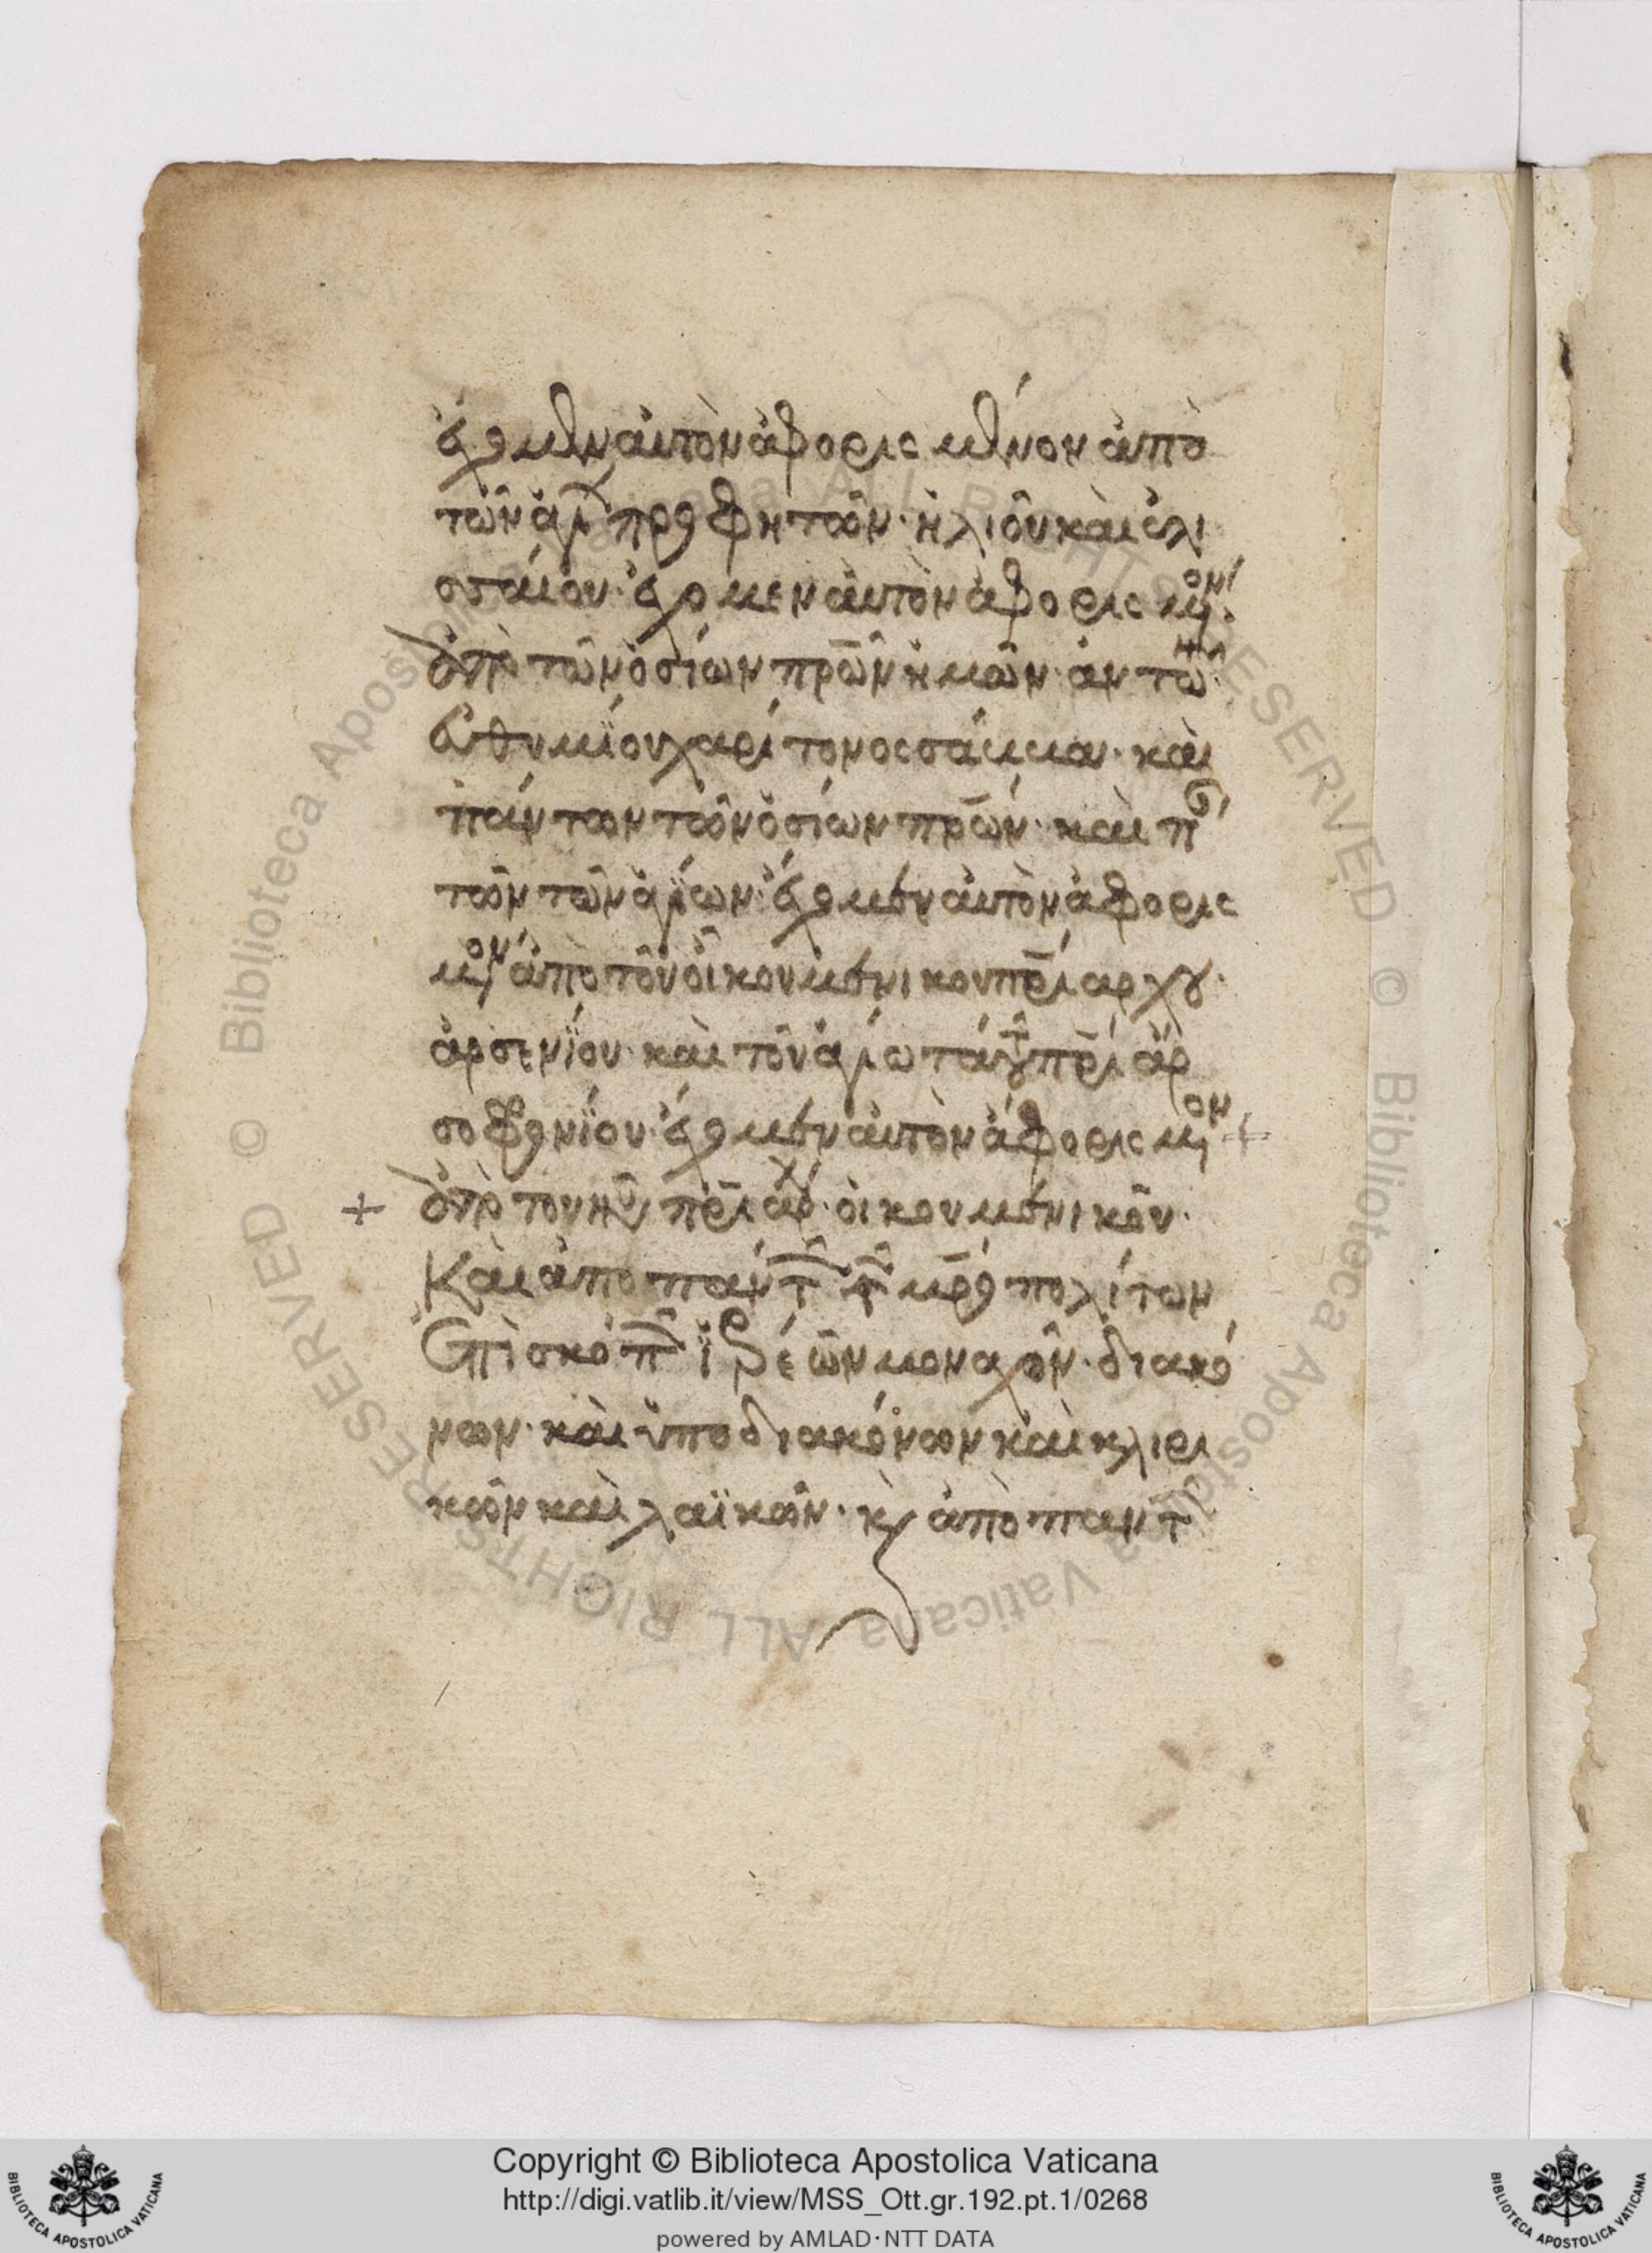 ἔχομεν αὐτὸν ἀφορισμένον ἀπὸ
τῶν ἁγ προφητῶν· ἠλιοῦ καὶ ἐλι
σσαίου· ἔχομεν αὐτὸν ἀφορισμον
ἀπὸ τῶν ὁσίων πρῶν ἡμῶν· ἀντω
εὐθυμίου χαρίτονος σάμμα· καὶ
πάντων τῶν ὁσίων πρῶν· καὶ π
των τῶν ἁγίων· ἔχομεν αὐτὸν ἀφορις
μον ἀπὸ τοῦ οἰκουμενικου πρι αρχου·
ἀρσενίου· καὶ τοῦ ἁγιωτάτου πρι αρ
σοφονίου· ἔχομεν αὐτὸν ἀφορισμον +
+ ἀπὸ του ἡμῶν πρι αρχ· οἰκουμενικοῦ·
Καὶ ἀπο παντ τ μρο πολίτων
ἐπισκόπ ἱερέων μοναχῶν· διακό
νων· καὶ ὑποδιακόνων καὶ κλιρι
κῶν καὶ λαϊκῶν· κ ἀπὸ παντ
Copyright © Biblioteca Apostolica Vaticana
http://digi.vatlib.it/view/MSS_Ott.gr.192.pt.1/0268
powered by AMLAD·NTT DATA
BIBLIOTECA APOSTOLICA VATICANA
BIBLIOTECA APOSTOLICA VATICANA
© Biblioteca Apostolica Vaticana ALL RIGHTS RESERVED
© Biblioteca Apostolica Vaticana ALL RIGHTS RESERVED